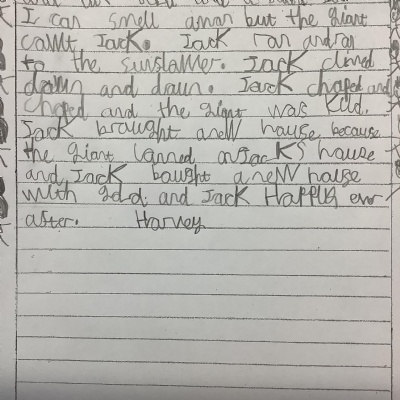 I can smell a man but the giant
camt Jack. Jack ran and ran
to the sunslamer. Jack climed
down and down. Jack chaped and
Chaped and the giant was kild.
Jack brought a new hause because
the giant lanned on Jack's hause
and Jack bought a new hause
with gold. and Jack Happliy ever
after. Harvey